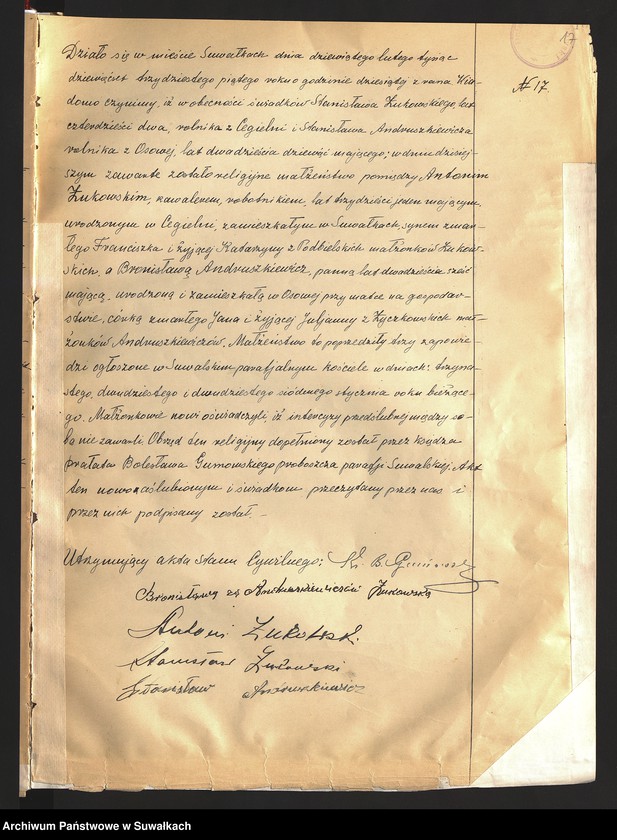 17
№ 17.
Działo się w mieście Suwałkach dnia dziewiątego lutego tysiąc
dziewięćset trzydziestego piątego roku o godzinie dziesiątej z rana. Wia-
domo czynimy, iż w obecności świadków Stanisława Żukowskiego lat
czterdzieści dwa, rolnika z Cegielni i Stanisława Andruszkiewicza
rolnika z Osowej, lat dwadzieścia dziewięć mającego; w dniu dzisiej-
szym zawarte zostało religijne małżeństwo pomiędzy Antonim
Żukowskim, kawalerem, robotnikiem, lat trzydzieści jeden mającym,
urodzonym w Cegielni, zamieszkałym w Suwałkach, synem zmar-
łego Franciszka i żyjącej Katarzyny z Podbielskich małżonków Żukow-
skich, a Bronisławą Andruszkiewicz, panną lat dwadzieścia sześć
mającą, urodzoną i zamieszkałą w Osowej przy matce na gospodar-
stwie, córką zmarłego Jana i żyjącej Juljanny z Życzkowskich mał-
żonków Andruszkiewiczów. Małżeństwo to poprzedziły trzy zapowie-
dzi ogłoszone w Suwalskim parafjalnym kościele w dniach: trzyna-
stego, dwudziestego i dwudziestego siódmego stycznia roku bieżące-
go. Małżonkowie nowi oświadczyli, iż intercyzy przedślubnej między so-
bą nie zawarli. Obrzęd ten religijny dopełniony został przez księdza
prałata Bolesława Gumowskiego proboszcza parafji Suwalskiej. Akt
ten nowozaślubionym i świadkom przeczytany przez nas i
przez nich podpisany został. –
Utrzymujący akta stanu cywilnego: Ks. B. Gumowski
Bronisława z Andruszkiewiczów Żukowska
Antoni Żukowski.
Stanisław Żukowski
Stanisław Andruszkiewicz
Archiwum Państwowe w Suwałkach